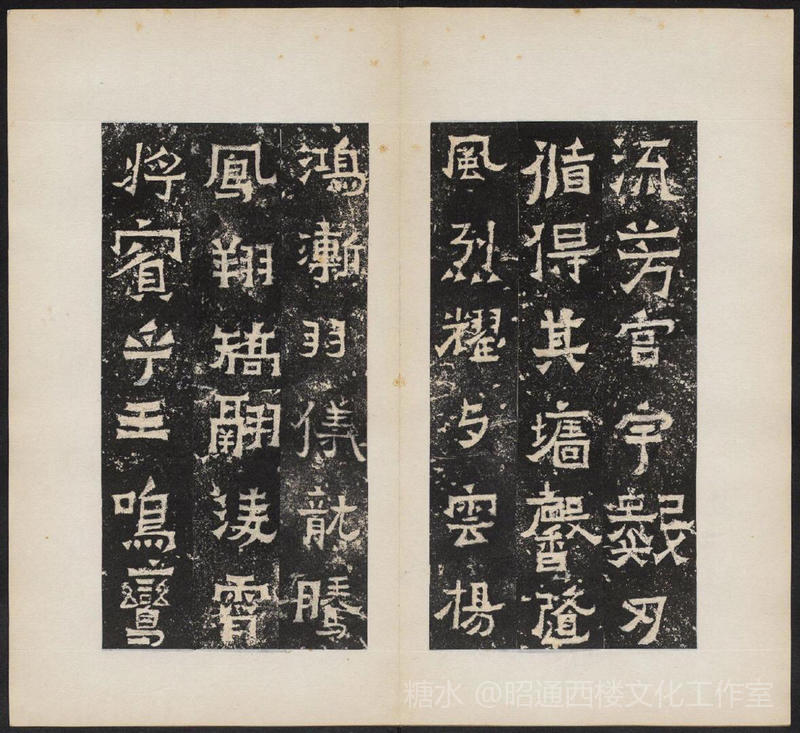 流芳宫宇數刃
循得其墻馨隨
風烈耀与雲揚
鴻漸羽儀龍騰
鳳翔矯翮淩霄
將賓乎王鳴鸞
糖水 @昭通西楼文化工作室